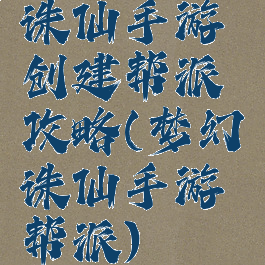 诛仙手游
创建帮派
攻略(梦幻
诛仙手游
帮派)